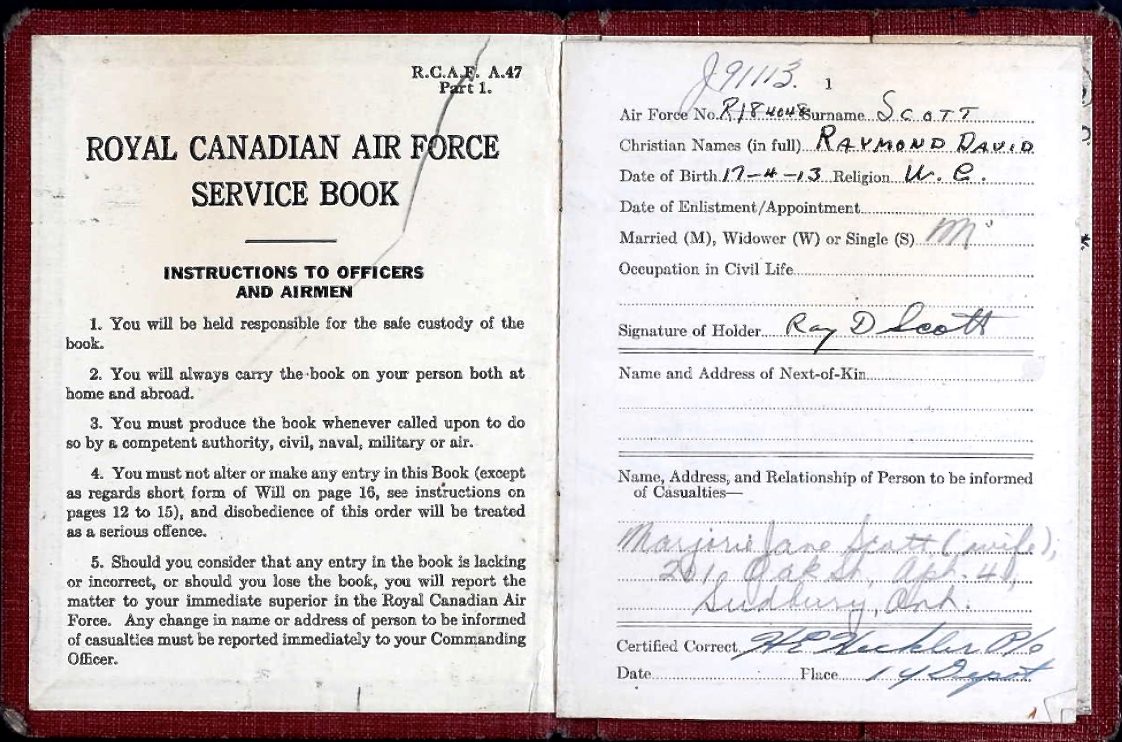 R.C.A.F. A.47
Part 1.
ROYAL CANADIAN AIR FORCE
SERVICE BOOK
INSTRUCTIONS TO OFFICERS
AND AIRMEN
1. You will be held responsible for the safe custody of the
book.
2. You will always carry the book on your person both at
home and abroad.
3. You must produce the book whenever called upon to do
so by a competent authority, civil, naval, military or air.
4. You must not alter or make any entry in this Book (except
as regards short form of Will on page 16, see instructions on
pages 12 to 15), and disobedience of this order will be treated
as a serious offence.
5. Should you consider that any entry in the book is lacking
or incorrect, or should you lose the book, you will report the
matter to your immediate superior in the Royal Canadian Air
Force. Any change in name or address of person to be informed
of casualties must be reported immediately to your Commanding
Officer.
J91113. 1
Air Force No. R184048 Surname SCOTT
Christian Names (in full) RAYMOND DAVID
Date of Birth 17-4-13 Religion U.C.
Date of Enlistment/Appointment
Married (M), Widower (W) or Single (S) M
Occupation in Civil Life
Signature of Holder Ray D Scott
Name and Address of Next-of-Kin
Name, Address, and Relationship of Person to be informed
of Casualties—
Marjorie Jane Scott (wife),
Oak St, Apt.
Sudbury, Ont.
Certified Correct
Date Place Depot